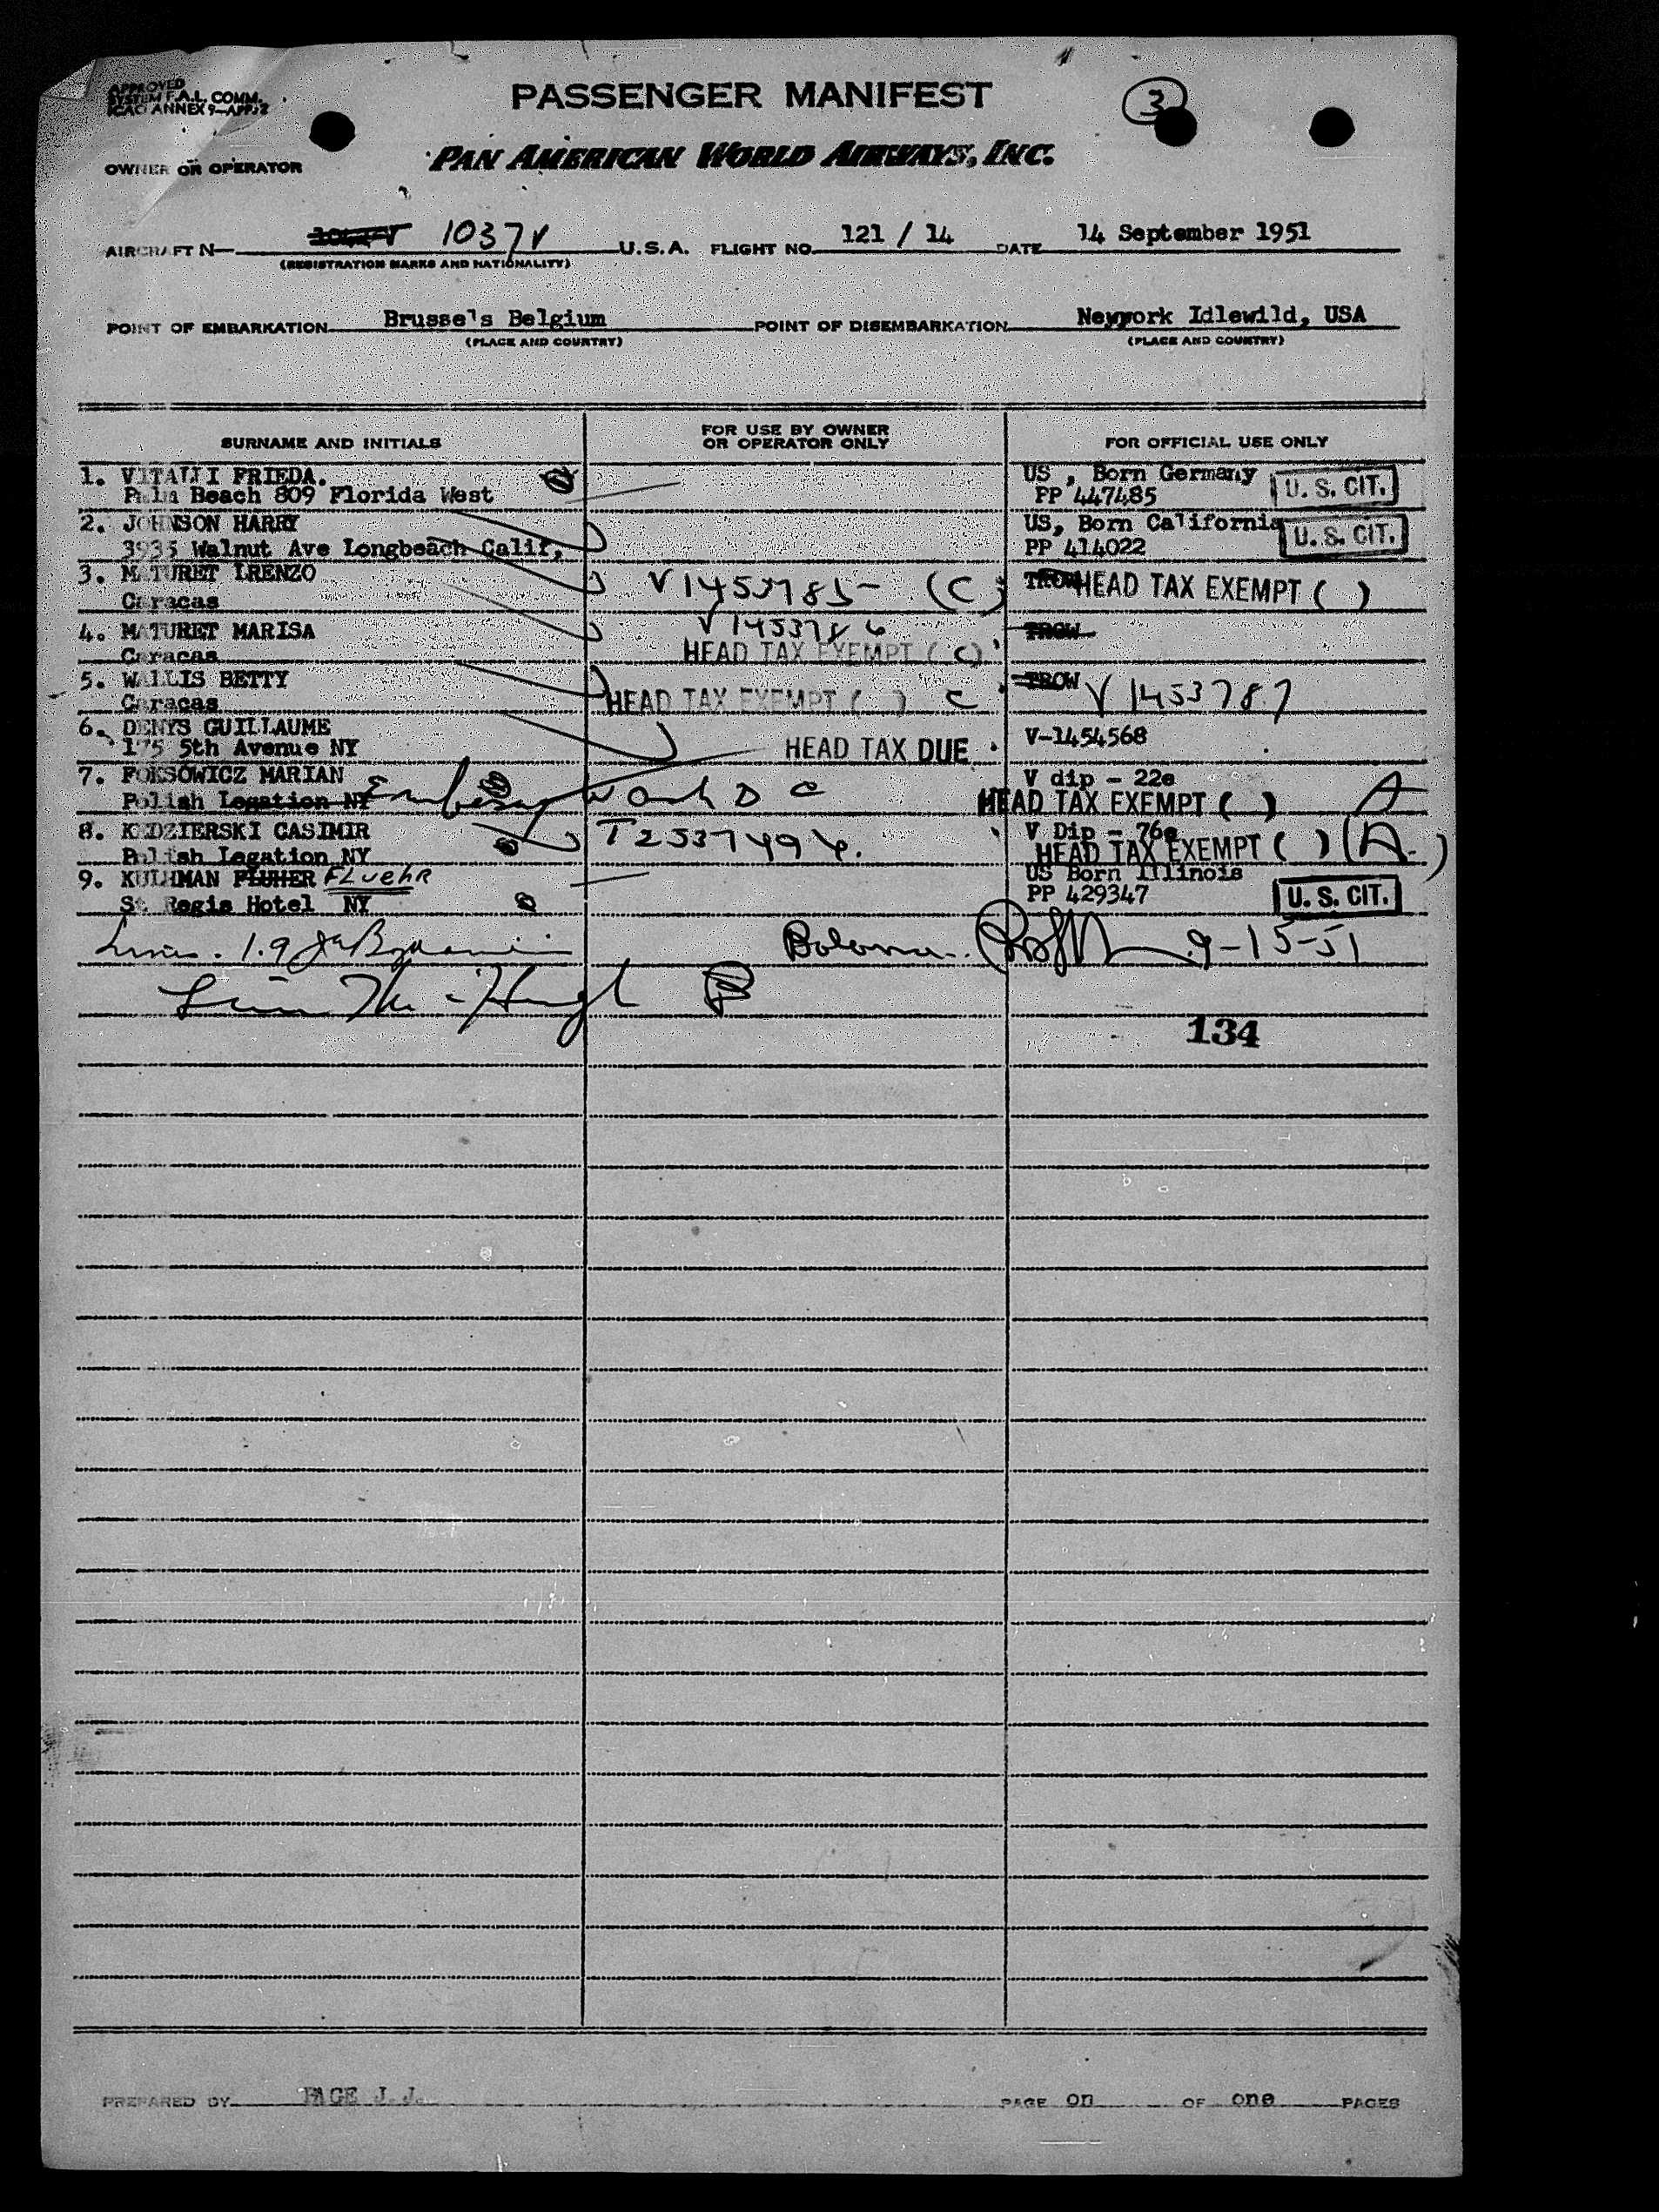 APPROVED
SYSTEM F.A.L. COMM.
ICAO ANNEX 9-APP. 2
PASSENGER MANIFEST
3
OWNER OR OPERATOR PAN AMERICAN WORLD AIRWAYS, INC.
AIRCRAFT N— 1037V U.S.A. FLIGHT NO. 121 / 14 DATE 14 September 1951
(REGISTRATION MARKS AND NATIONALITY)
POINT OF EMBARKATION Brusse's Belgium POINT OF DISEMBARKATION Newyork Idlewild, USA
(PLACE AND COUNTRY) (PLACE AND COUNTRY)
SURNAME AND INITIALS FOR USE BY OWNER OR OPERATOR ONLY FOR OFFICIAL USE ONLY
1. VITALLI FRIEDA. US , Born Germany U. S. CIT.
Palm Beach 809 Florida West PP 447485
2. JOHNSON HARRY US, Born California U. S. CIT.
3935 Walnut Ave Longbeach Calif, PP 414022
3. MATURET LRENZO V1453785 (C) TROW HEAD TAX EXEMPT ( )
Caracas
4. MATURET MARISA V1453786 TROW
Caracas HEAD TAX EXEMPT ( C )
5. WALLIS BETTY TROW V1453787
Caracas HEAD TAX EXEMPT ( ) C
6. DENYS GUILLAUME V-1454568
175 5th Avenue NY HEAD TAX DUE
7. POKSOWICZ MARIAN V dip - 22e
Polish Legation NY Embassy Wash D C HEAD TAX EXEMPT ( ) A
8. KEDZIERSKI CASIMIR T2537494. V Dip - 76e
Polish Legation NY HEAD TAX EXEMPT ( ) (A.)
9. KUHLMAN FLUHER FLUEHR US Born Illinois
St Regis Hotel NY PP 429347 U. S. CIT.
9-15-51
134
PREPARED BY PAGE J.J. PAGE on OF one PAGES